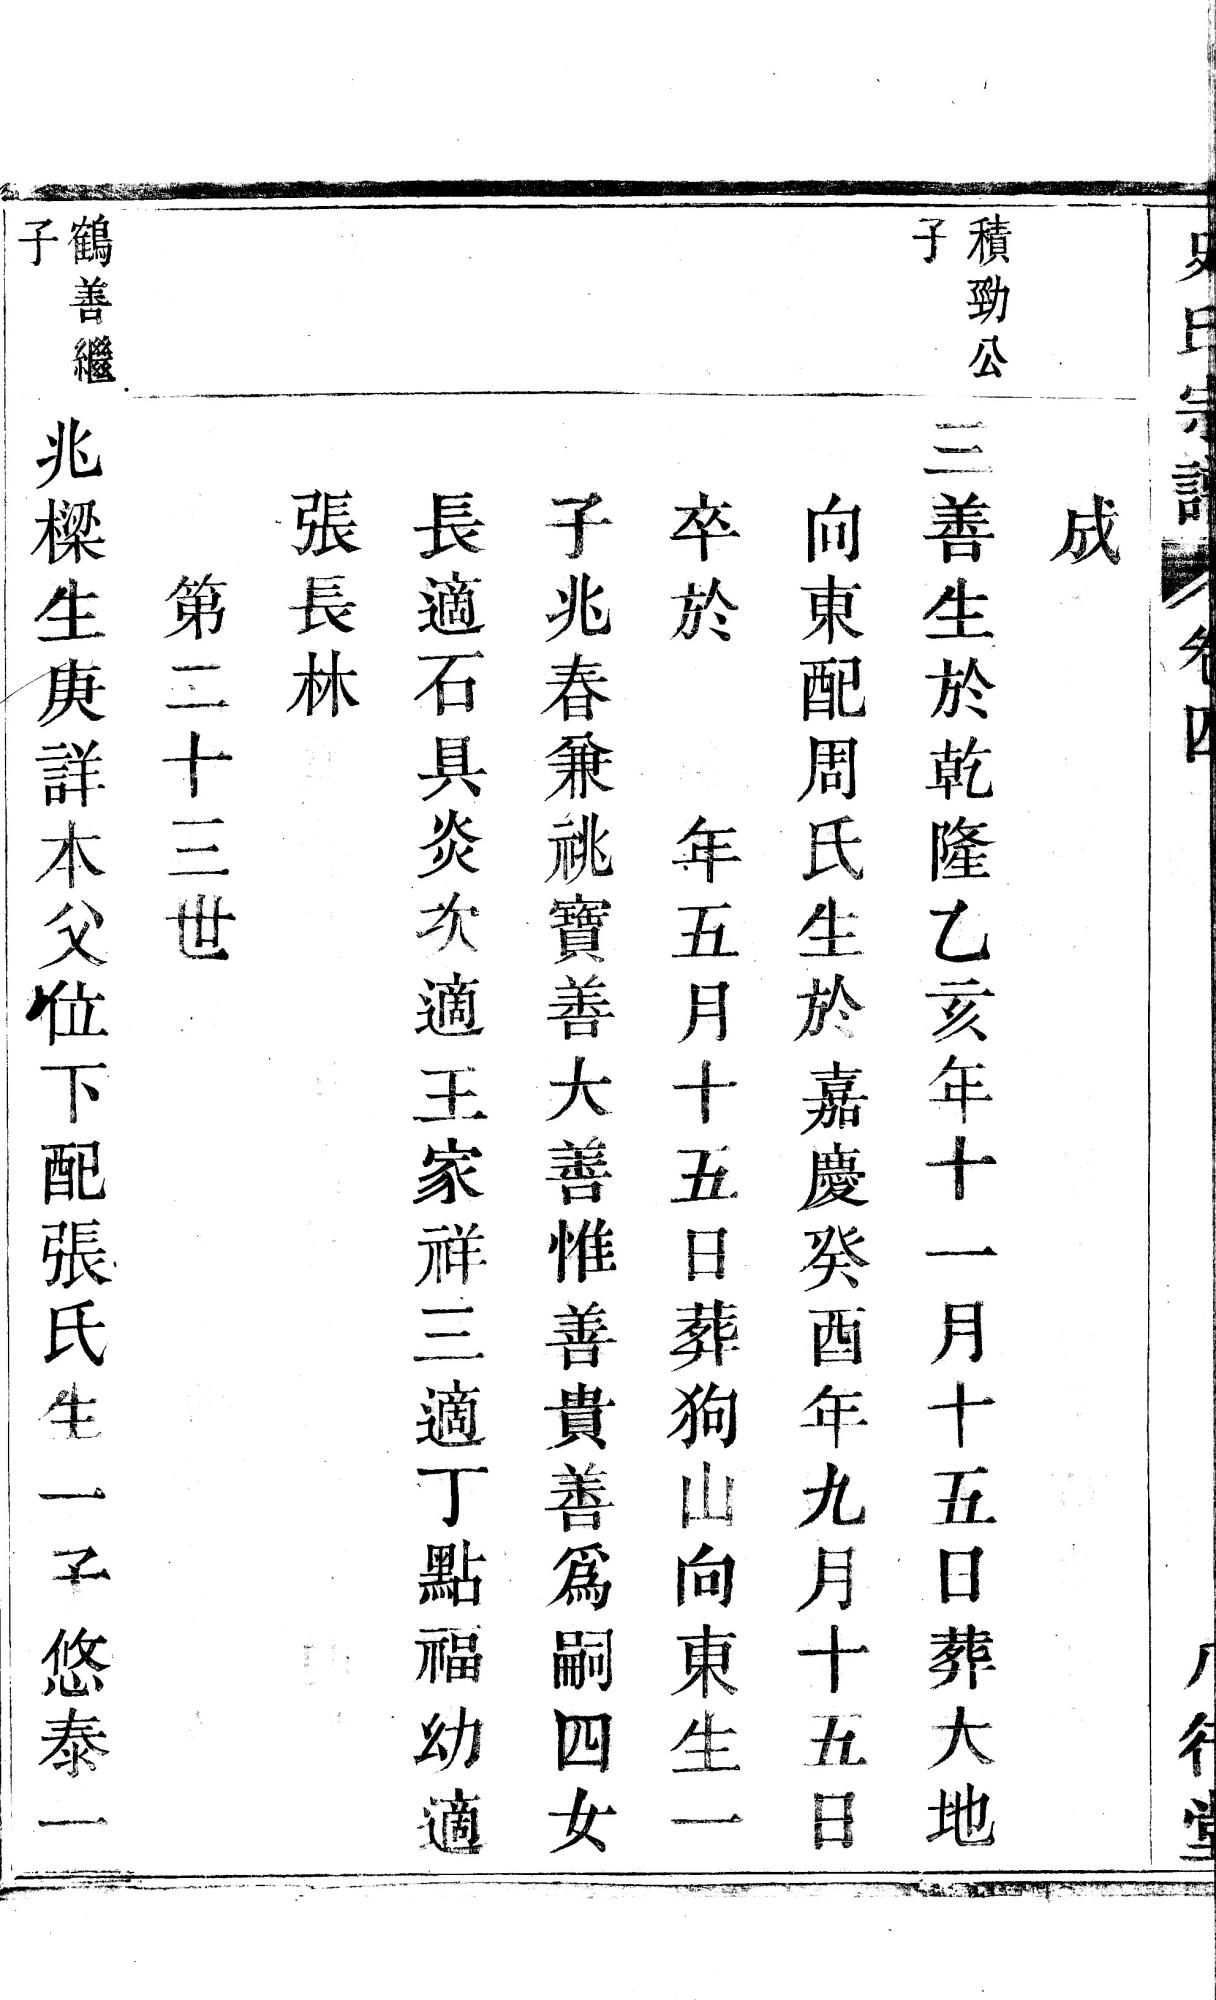 史氏宗譜 卷四
成
積勁公
子
三善生於乾隆乙亥年十一月十五日葬大地
向東配周氏生於嘉慶癸酉年九月十五日
卒於 年五月十五日葬狗山向東生一
子兆春兼祧寶善大善惟善貴善爲嗣四女
長適石具炎次適王家祥三適丁點福幼適
張長林
第二十三世
鶴善繼
子
兆樑生庚詳本父位下配張氏生一子悠泰一